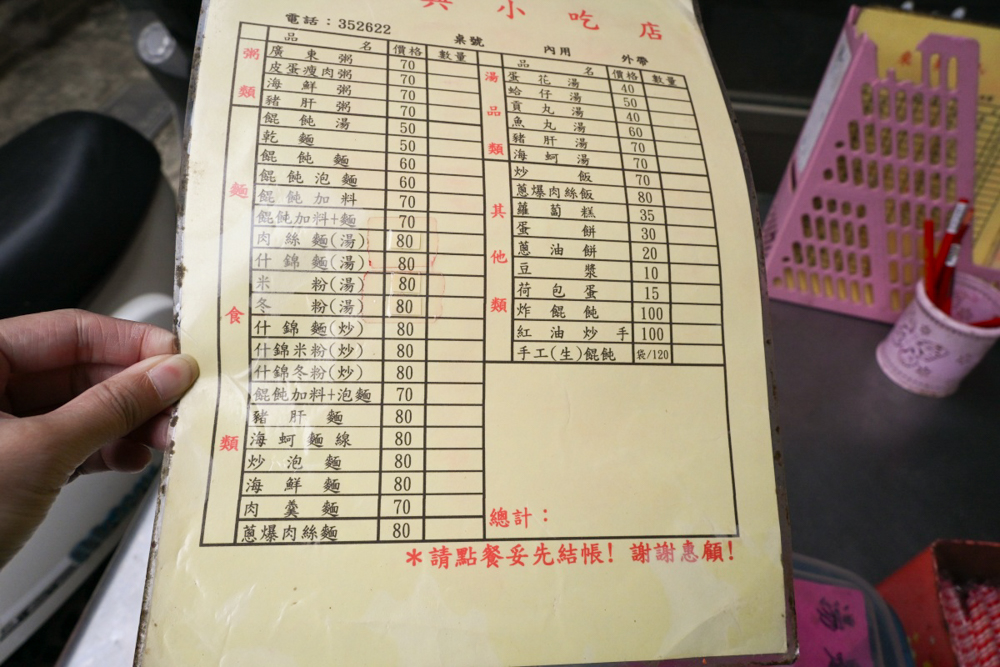 興小吃店
電話：352622 桌號 內用 外帶
品名 價格 數量
粥類
廣東粥 70
皮蛋瘦肉粥 70
海鮮粥 70
豬肝粥 70
麵食類
餛飩湯 50
乾麵 50
餛飩麵 60
餛飩泡麵 60
餛飩加料 70
餛飩加料+麵 70
肉絲麵(湯) 80
什錦麵(湯) 80
米粉(湯) 80
冬粉(湯) 80
什錦麵(炒) 80
什錦米粉(炒) 80
什錦冬粉(炒) 80
餛飩加料+泡麵 70
豬肝麵 80
海蚵麵線 80
炒泡麵 80
海鮮麵 80
肉羹麵 70
蔥爆肉絲麵 80
品名 價格 數量
湯品類
蛋花湯 40
蛤仔湯 50
貢丸湯 40
魚丸湯 60
豬肝湯 70
海蚵湯 70
其他類
炒飯 70
蔥爆肉絲飯 80
蘿蔔糕 35
蛋餅 30
蔥油餅 20
豆漿 10
荷包蛋 15
炸餛飩 100
紅油炒手 100
手工(生)餛飩 袋/120
總計：
＊請點餐妥先結帳！謝謝惠顧！